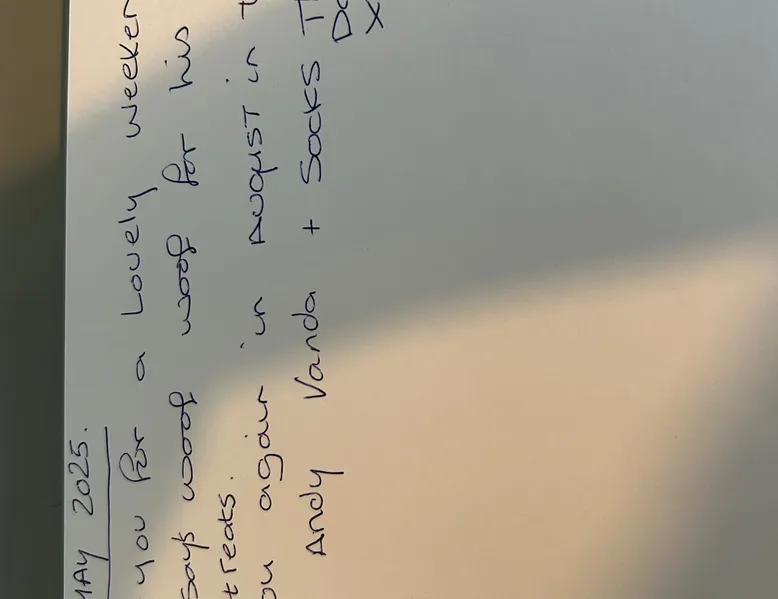 MAY 2025.
you for a Lovely weeken
says woof woof for his
treats.
ou again in August in t
Andy Vanda + Socks T
Do
X